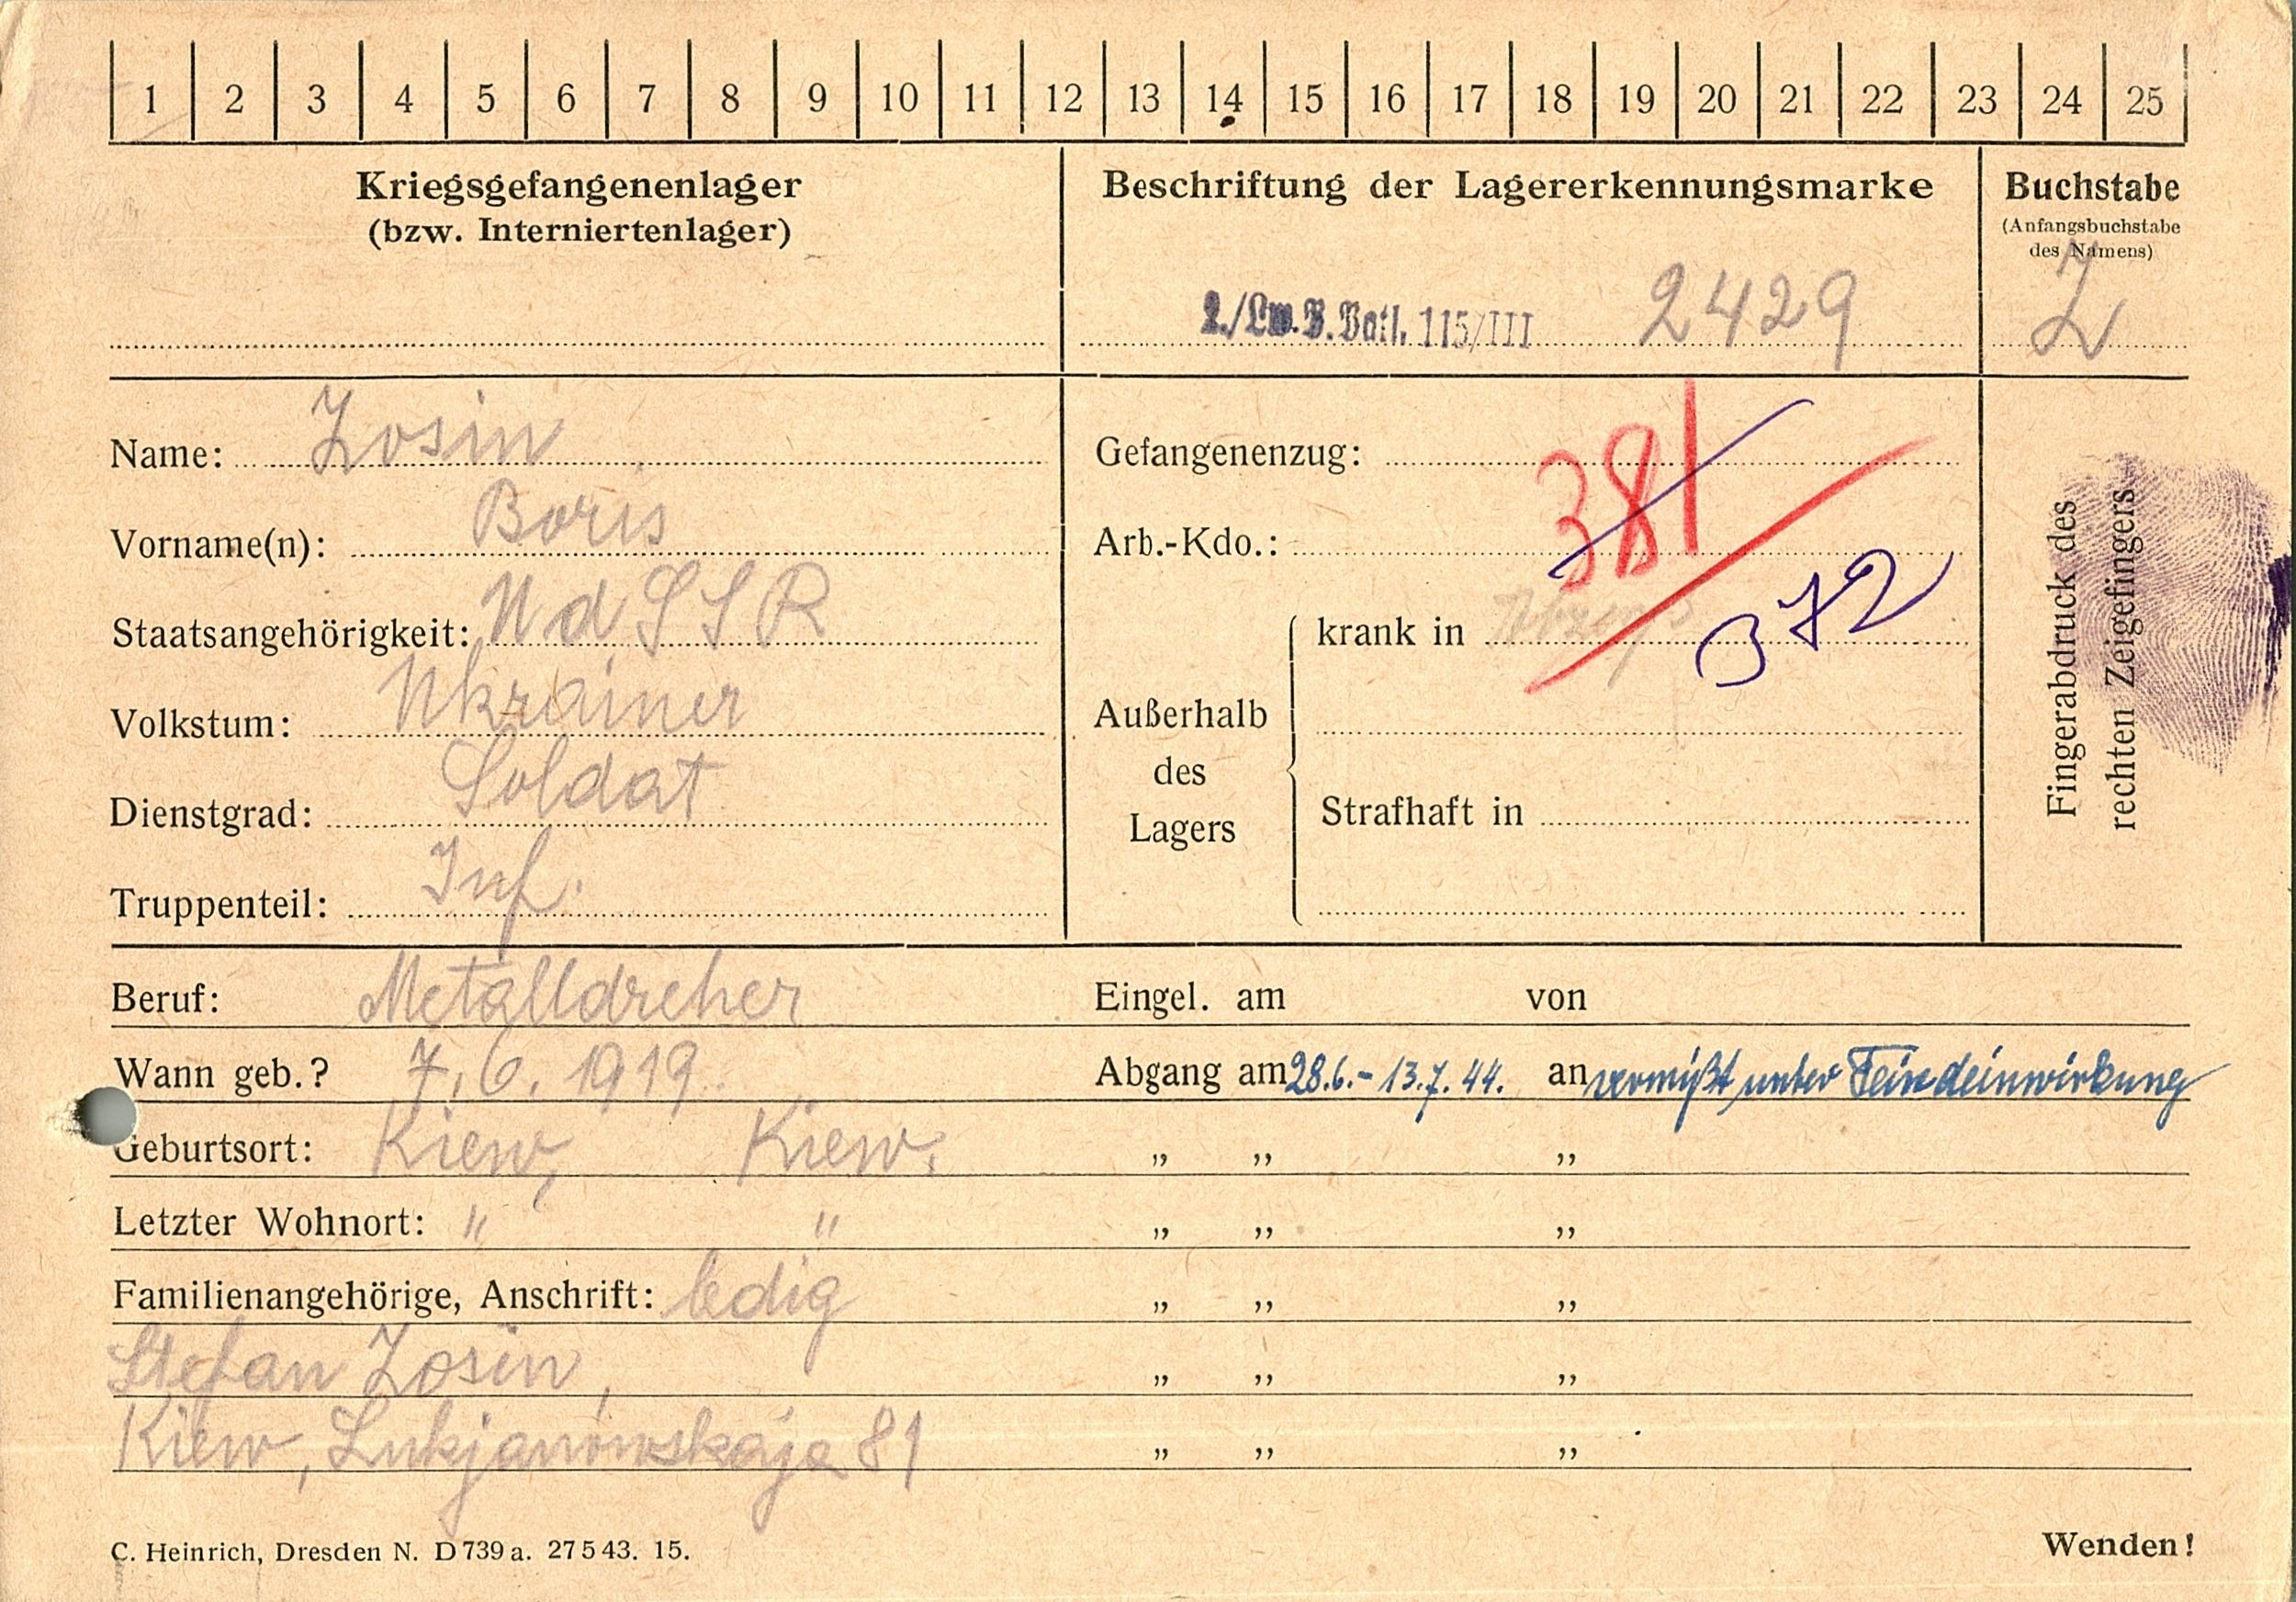 1 2 3 4 5 6 7 8 9 10 11 12 13 14 15 16 17 18 19 20 21 22 23 24 25
Kriegsgefangenenlager
(bzw. Interniertenlager)
Beschriftung der Lagererkennungsmarke
2./Lw.B.Batl. 115/III 2429
Buchstabe
(Anfangsbuchstabe
des Namens)
Z
Name: Zosin
Vorname(n): Boris
Staatsangehörigkeit: UdSSR
Volkstum: Ukrainer
Dienstgrad: Soldat
Truppenteil: Inf.
Gefangenenzug:
381
Arb.-Kdo.:
372
Außerhalb
des
Lagers
krank in
Strafhaft in
Fingerabdruck des
rechten Zeigefingers
Beruf: Metalldreher
Eingel. am von
Wann geb.? 7.6.1919.
Abgang am 28.6.- 13.7.44. an vermißt unter Feindeinwirkung
Geburtsort: Kiew, Kiew.
„ „ „
Letzter Wohnort: " "
„ „ „
Familienangehörige, Anschrift: ledig
„ „ „
Stefan Zosin,
„ „ „
Kiew, Lukjanowskaja 81
„ „ „
C. Heinrich, Dresden N. D 739 a. 27543. 15.
Wenden!